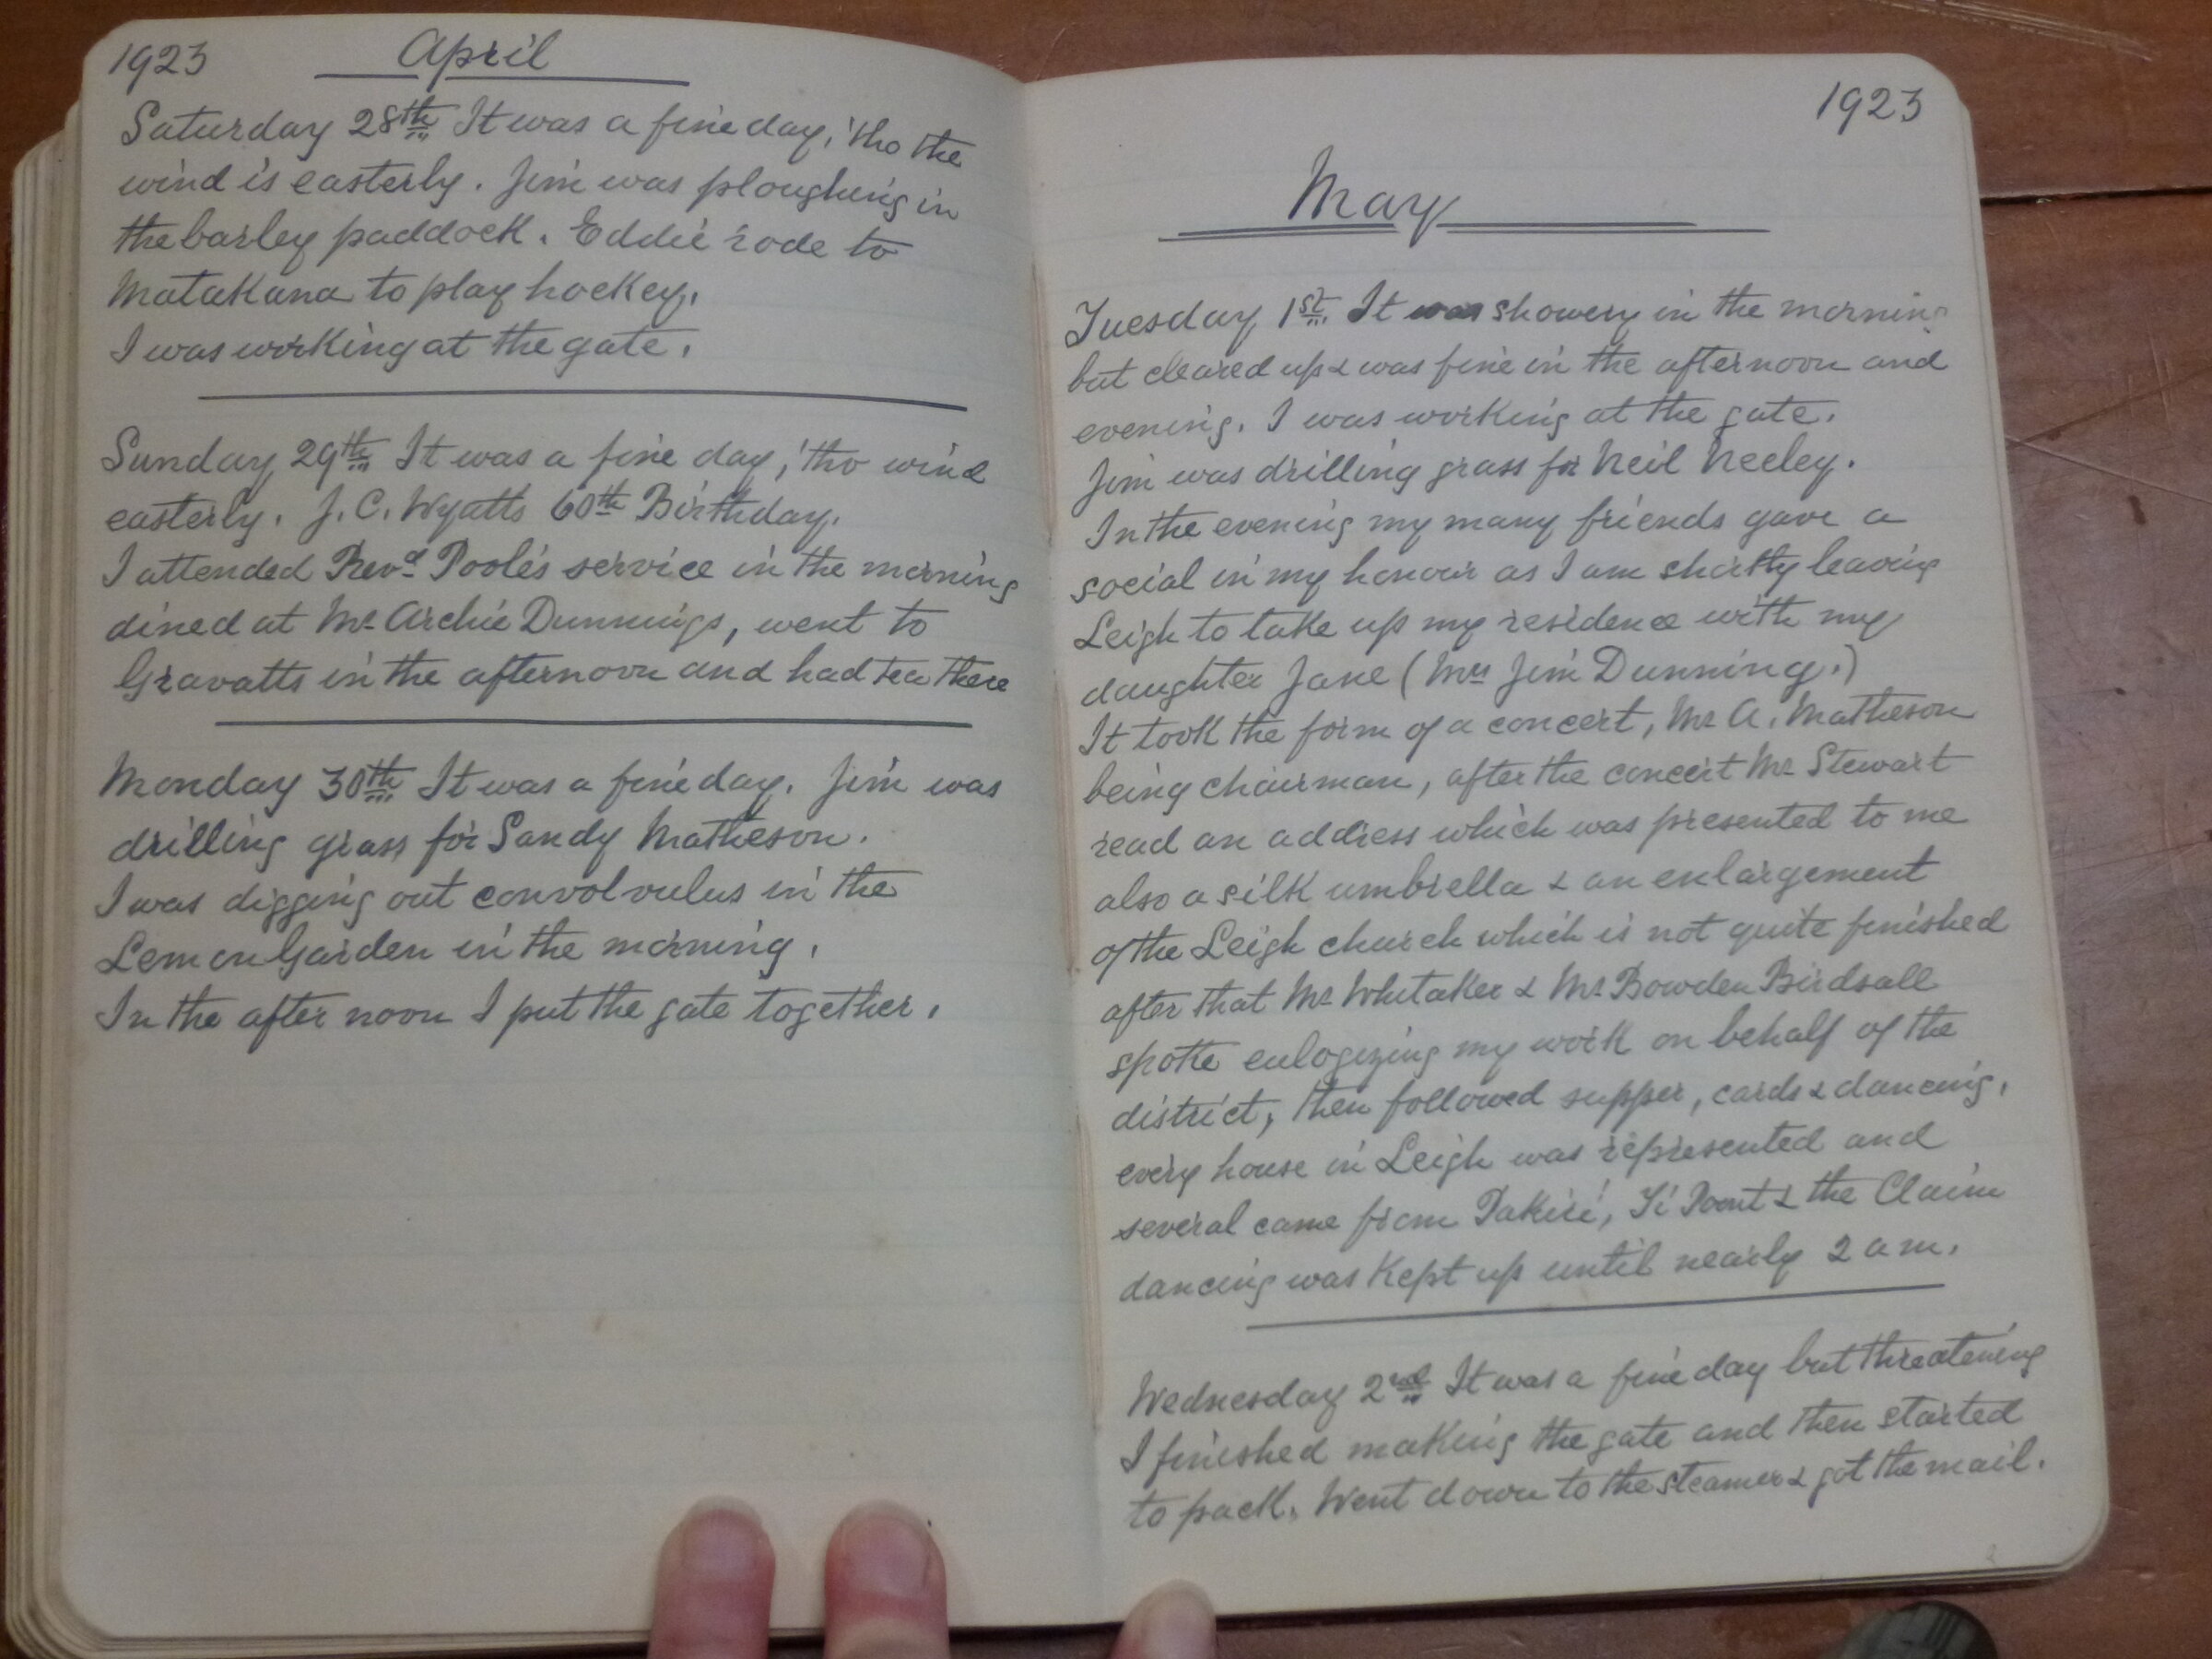 1923 April
Saturday 28th It was a fine day, 'tho the
wind is easterly. Jim was ploughing in
the barley paddock. Eddie rode to
Matakana to play hockey.
I was working at the gate.
Sunday 29th It was a fine day, 'tho wind
easterly. J. C. Wyatts 60th Birthday.
I attended Revd Poole's service in the morning
dined at Mr Archie Dunnings, went to
Gravatts in the afternoon and had tea there
Monday 30th It was a fine day. Jim was
drilling grass for Sandy Matheson.
I was digging out convolvulus in the
Lemon Garden in the morning.
In the after noon I put the gate together.
1923
May
Tuesday 1st It was showery in the morning
but cleared up & was fine in the afternoon and
evening. I was working at the gate.
Jim was drilling grass for Neil Neeley.
In the evening my many friends gave a
social in my honour as I am shortly leaving
Leigh to take up my residence with my
daughter Jane (Mrs Jim Dunning.)
It took the form of a concert, Mr A. Matheson
being chairman, after the concert Mr Stewart
read an address which was presented to me
also a silk umbrella & an enlargement
of the Leigh church which is not quite finished
after that Mr Whitaker & Mr Bowden Birdsall
spoke eulogizing my work on behalf of the
district, then followed supper, cards & dancing.
every house in Leigh was represented and
several came from Pakiri, Ti Point & the Claim
dancing was kept up until nearly 2 am.
Wednesday 2nd It was a fine day but threatening
I finished making the gate and then started
to pack. Went down to the steamer & got the mail.